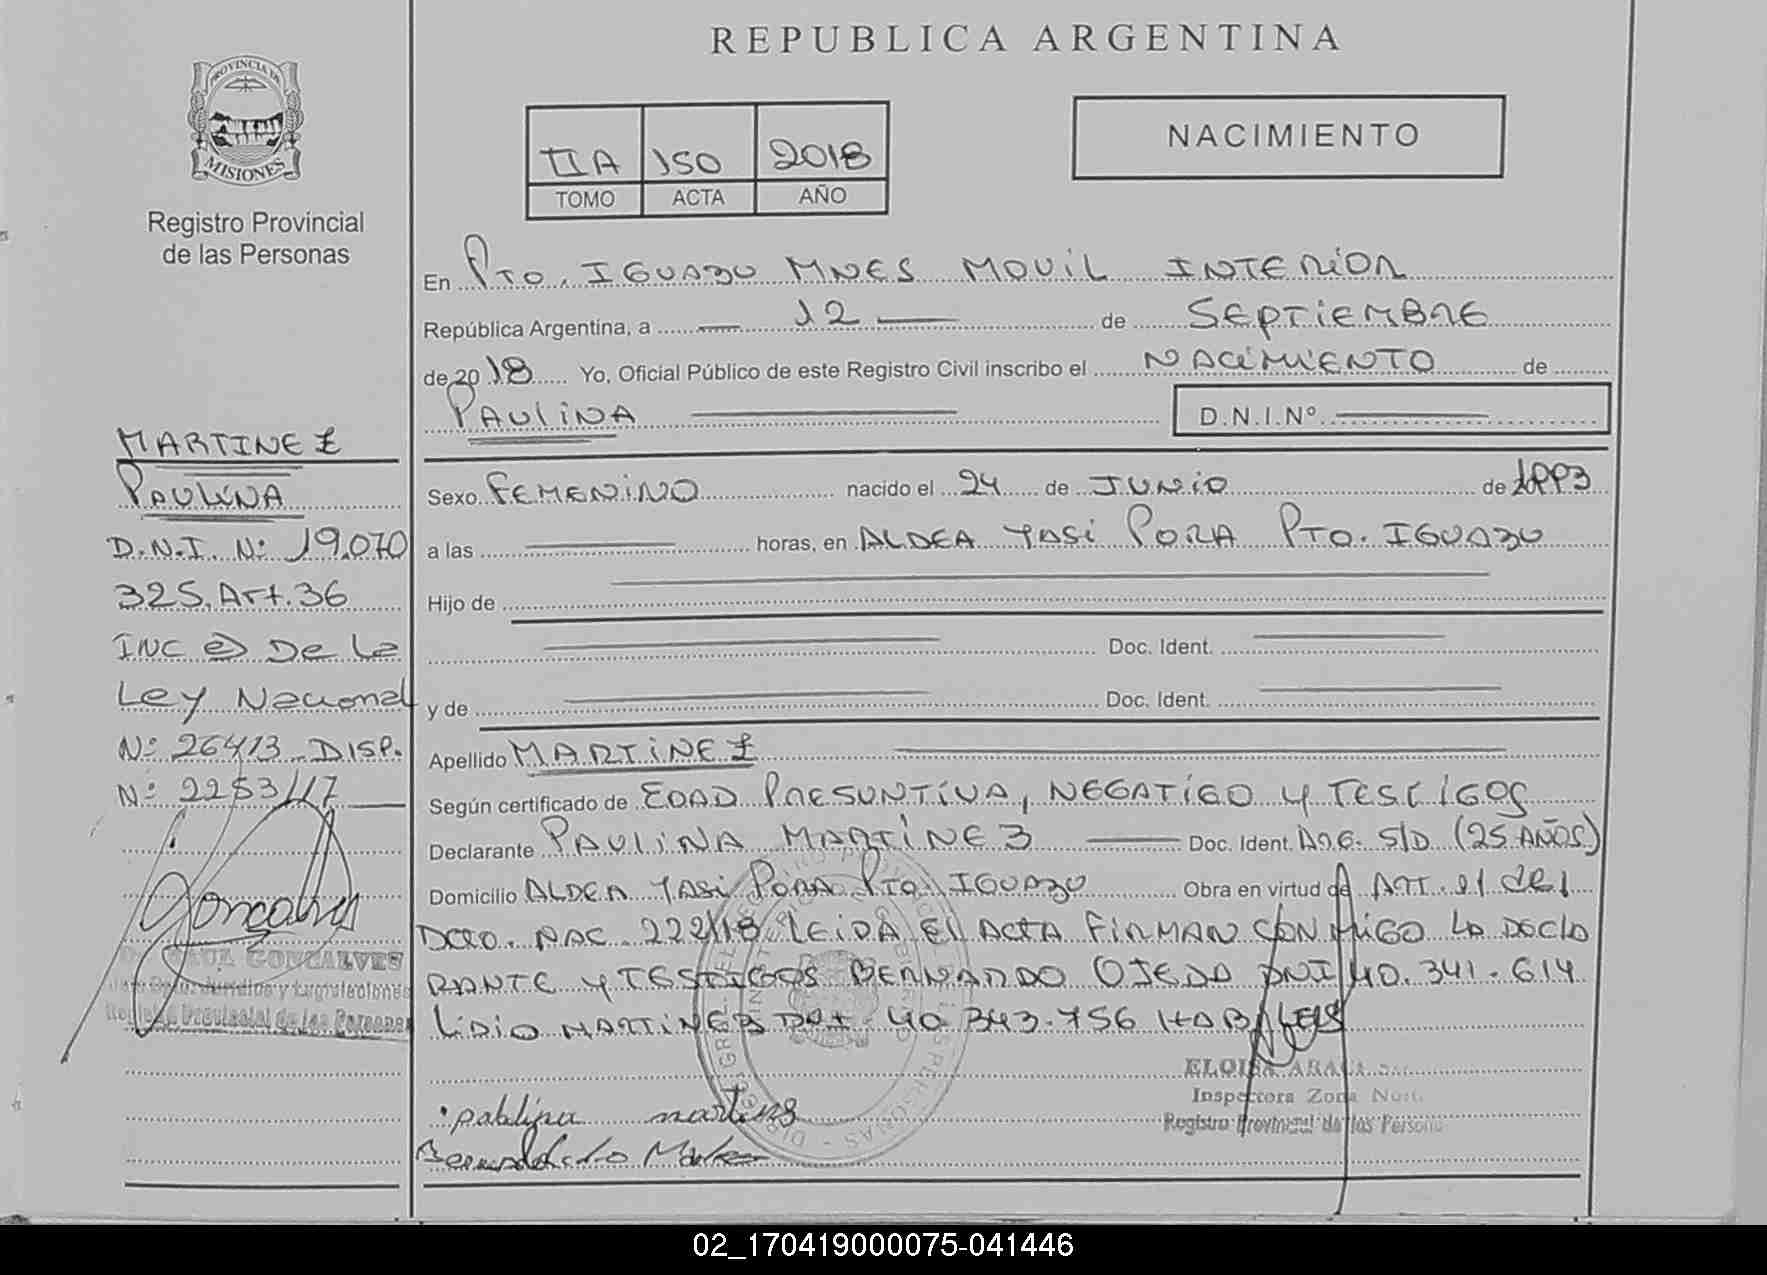 PROVINCIA DE
MISIONES
Registro Provincial
de las Personas
MARTINEZ
PAULINA
D.N.I. Nº 19.070
325. Art. 36
INC e) De La
Ley Nacional
Nº 26413 DISP.
Nº 2253/17
Goncalves
RAUL GONCALVES
Registro Provincial de las Personas
REPUBLICA ARGENTINA
IIA 150 2018
TOMO ACTA AÑO
NACIMIENTO
En Pto. IGUAZU MNES MOVIL INTERIOR
República Argentina, a 12 de SEPTIEMBRE
de 2018 Yo, Oficial Público de este Registro Civil inscribo el NACIMIENTO de
PAULINA D.N.I.Nº
Sexo FEMENINO nacido el 24 de JUNIO de 1993
a las horas, en ALDEA YASI PORA PTO. IGUAZU
Hijo de
Doc. Ident.
y de Doc. Ident.
Apellido MARTINEZ
Según certificado de EDAD PRESUNTIVA, NEGATIGO y TESTIGOS
Declarante PAULINA MARTINEZ Doc. Ident. ARG. S/D (25 AÑOS)
Domicilio ALDEA YASI PORA PTO. IGUAZU Obra en virtud de ART. 21 del
DCTO. NAC. 222/18 LEIDA El ACTA FIRMAN CONMIGO LA DECLA
RANTE y TESTIGOS BERNARDO OJEDA DNI 40.341.614
LIDIO MARTINEZ DNI 40 343.756 HABILES
ELOISA
Inspectora Zona
Registro Provincial de las Persona
pablina martines
02_170419000075-041446